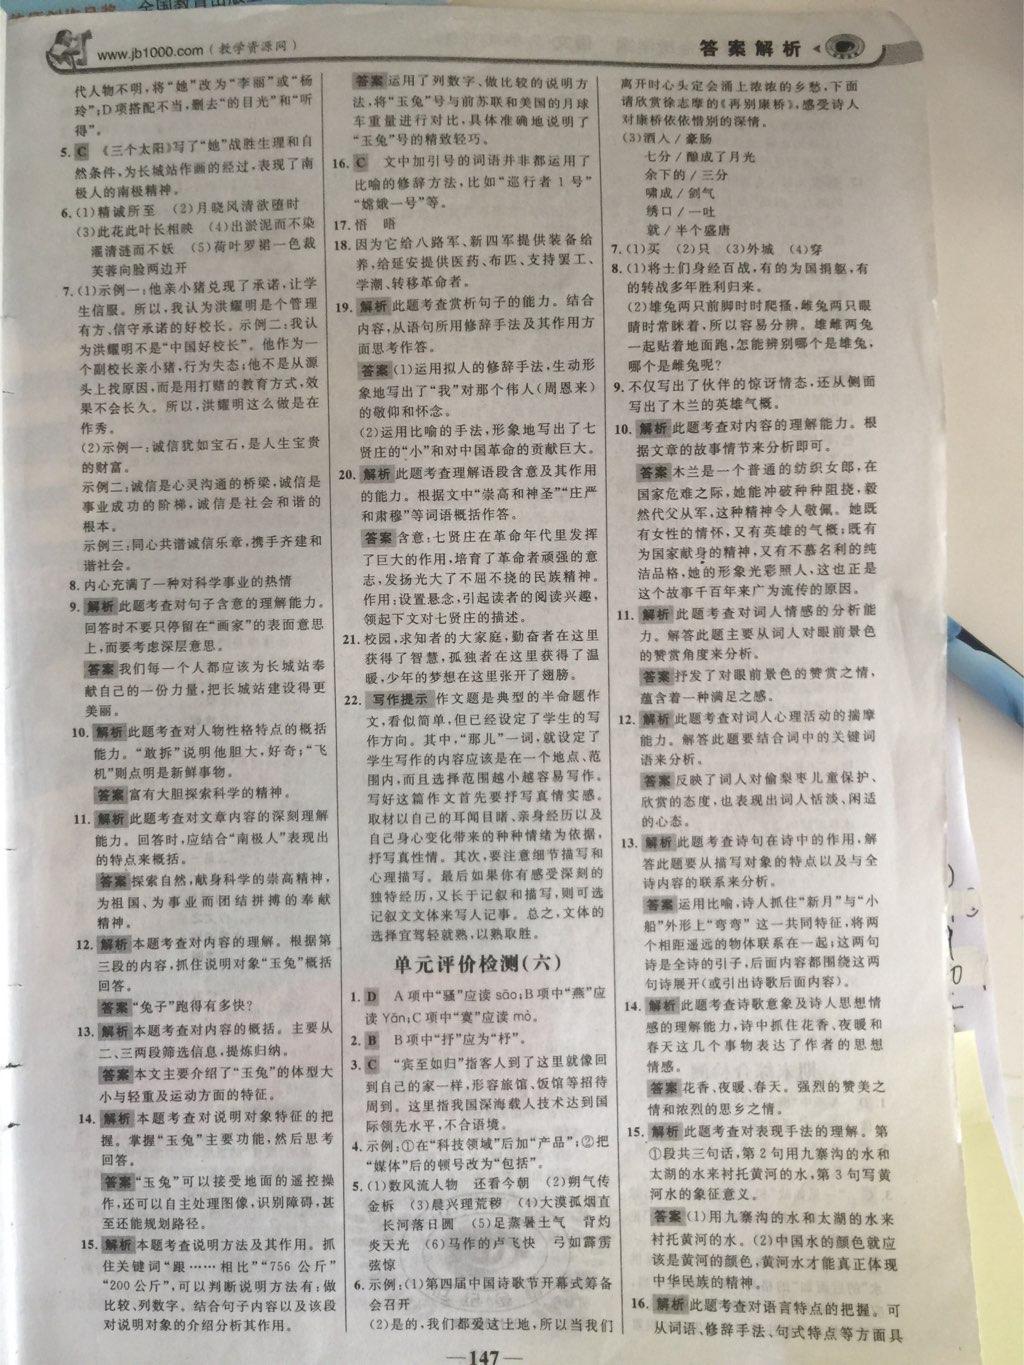 www.jb1000.com（教学资源网）
答案解析
代人物不明，将“她”改为“李丽”或“杨
玲”；D项搭配不当，删去“的目光”和“听
得”。
5. C 《三个太阳》写了“她”战胜生理和自
然条件，为长城站作画的经过，表现了南
极人的南极精神。
6. (1)精诚所至 (2)月晓风清欲堕时
(3)此花此叶长相映 (4)出淤泥而不染
濯清涟而不妖 (5)荷叶罗裙一色裁
芙蓉向脸两边开
7. (1)示例一：他亲小猪兑现了承诺，让学
生信服。所以，我认为洪耀明是个管理
有方、信守承诺的好校长。示例二：我认
为洪耀明不是“中国好校长”。他作为一
个副校长亲小猪，行为失态；他不是从源
头上找原因，而是用打赌的教育方式，效
果不会长久。所以，洪耀明这么做是在
作秀。
(2)示例一：诚信犹如宝石，是人生宝贵
的财富。
示例二：诚信是心灵沟通的桥梁，诚信是
事业成功的阶梯，诚信是社会和谐的
根本。
示例三：同心共谱诚信乐章，携手齐建和
谐社会。
8. 内心充满了一种对科学事业的热情
9. 解析 此题考查对句子含意的理解能力。
回答时不要只停留在“画家”的表面意思
上，而要考虑深层意思。
答案 我们每一个人都应该为长城站奉
献自己的一份力量，把长城站建设得更
美丽。
10. 解析 此题考查对人物性格特点的概括
能力。“敢拆”说明他胆大，好奇；“飞
机”则点明是新鲜事物。
答案 富有大胆探索科学的精神。
11. 解析 此题考查对文章内容的深刻理解
能力。回答时，应结合“南极人”表现出
的特点来概括。
答案 探索自然，献身科学的崇高精神，
为祖国、为事业而团结拼搏的奉献
精神。
12. 解析 本题考查对内容的理解。根据第
三段的内容，抓住说明对象“玉兔”概括
回答。
答案 “兔子”跑得有多快？
13. 解析 本题考查对内容的概括。主要从
二、三两段筛选信息，提炼归纳。
答案 本文主要介绍了“玉兔”的体型大
小与轻重及运动方面的特征。
14. 解析 本题考查对说明对象特征的把
握。掌握“玉兔”主要功能，然后思考
回答。
答案 “玉兔”可以接受地面的遥控操
作，还可以自主处理图像，识别障碍，甚
至还能规划路径。
15. 解析 本题考查说明方法及其作用。抓
住关键词“跟……相比”“756 公斤”
“200公斤”，可以判断说明方法有：做
比较、列数字。结合句子内容以及该段
对说明对象的介绍分析其作用。
答案 运用了列数字、做比较的说明方
法，将“玉兔”号与前苏联和美国的月球
车重量进行对比，具体准确地说明了
“玉兔”号的精致轻巧。
16. C 文中加引号的词语并非都运用了
比喻的修辞方法，比如“巡行者 1 号”
“嫦娥一号”等。
17. 悟 晤
18. 因为它给八路军、新四军提供装备给
养，给延安提供医药、布匹、支持罢工、
学潮、转移革命者。
19. 解析 此题考查赏析句子的能力。结合
内容，从语句所用修辞手法及其作用方
面思考作答。
答案 (1)运用拟人的修辞手法，生动形
象地写出了“我”对那个伟人（周恩来）
的敬仰和怀念。
(2)运用比喻的手法，形象地写出了七
贤庄的“小”和对中国革命的贡献巨大。
20. 解析 此题考查理解语段含意及其作用
的能力。根据文中“崇高和神圣”“庄严
和肃穆”等词语概括作答。
答案 含意：七贤庄在革命年代里发挥
了巨大的作用，培育了革命者顽强的意
志，发扬光大了不屈不挠的民族精神。
作用：设置悬念，引起读者的阅读兴趣，
领起下文对七贤庄的描述。
21. 校园，求知者的大家庭，勤奋者在这里
获得了智慧，孤独者在这里获得了温
暖，少年的梦想在这里张开了翅膀。
22. 写作提示 作文题是典型的半命题作
文，看似简单，但已经设定了学生的写
作方向。其中，“那儿”一词，就设定了
学生写作的内容应该是在一个地点、范
围内，而且选择范围越小越容易写作。
写好这篇作文首先要抒写真情实感。
取材以自己的耳闻目睹、亲身经历以及
自己身心变化带来的种种情绪为依据，
抒写真性情。其次，要注意细节描写和
心理描写。最后如果你有感受深刻的
独特经历，又长于记叙和描写，则可选
记叙文文体来写人记事。总之，文体的
选择宜驾轻就熟，以熟取胜。
单元评价检测（六）
1. D A项中“骚”应读sāo；B项中“燕”应
读Yān；C项中“寞”应读mò。
2. B B项中“抒”应为“杼”。
3. C “宾至如归”指客人到了这里就像回
到自己的家一样，形容旅馆、饭馆等招待
周到。这里指我国深海载人技术达到国
际领先水平，不合语境。
4. 示例：①在“科技领域”后加“产品”；②把
“媒体”后的顿号改为“包括”。
5. (1)数风流人物 还看今朝 (2)朔气传
金柝 (3)晨兴理荒秽 (4)大漠孤烟直
长河落日圆 (5)足蒸暑土气 背灼
炎天光 (6)马作的卢飞快 弓如霹雳
弦惊
6. 示例：(1)第四届中国诗歌节开幕式筹备
会召开
(2)是的，我们都爱这土地，所以当我们
离开时心头定会涌上浓浓的乡愁，下面
请欣赏徐志摩的《再别康桥》，感受诗人
对康桥依依惜别的深情。
(3)酒入/豪肠
七分/酿成了月光
余下的/三分
啸成/剑气
绣口/一吐
就/半个盛唐
7. (1)买 (2)只 (3)外城 (4)穿
8. (1)将士们身经百战，有的为国捐躯，有
的转战多年胜利归来。
(2)雄兔两只前脚时时爬搔，雌兔两只眼
睛时常眯着，所以容易分辨。雄雌两兔
一起贴着地面跑，怎能辨别哪个是雄兔，
哪个是雌兔呢？
9. 不仅写出了伙伴的惊讶情态，还从侧面
写出了木兰的英雄气概。
10. 解析 此题考查对内容的理解能力。根
据文章的故事情节来分析即可。
答案 木兰是一个普通的纺织女郎，在
国家危难之际，她能冲破种种阻挠，毅
然代父从军，这种精神令人敬佩。她既
有女性的情怀，又有英雄的气概；既有
为国家献身的精神，又有不慕名利的纯
洁品格，她的形象光彩照人，这也正是
这个故事千百年来广为流传的原因。
11. 解析 此题考查对词人情感的分析能
力。解答此题主要从词人对眼前景色
的赞赏角度来分析。
答案 抒发了对眼前景色的赞赏之情，
蕴含着一种满足之感。
12. 解析 此题考查对词人心理活动的揣摩
能力。解答此题要结合词中的关键词
语来分析。
答案 反映了词人对偷梨枣儿童保护、
欣赏的态度，也表现出词人恬淡、闲适
的心态。
13. 解析 此题考查诗句在诗中的作用，解
答此题要从描写对象的特点以及与全
诗内容的联系来分析。
答案 运用比喻，诗人抓住“新月”与“小
船”外形上“弯弯”这一共同特征，将两
个相距遥远的物体联系在一起；这两句
诗是全诗的引子，后面内容都围绕这两
句诗展开（或引出诗歌后面内容）。
14. 解析 此题考查诗歌意象及诗人思想情
感的理解能力，诗中抓住花香、夜暖和
春天这几个事物表达了作者的思想
情感。
答案 花香、夜暖、春天。强烈的赞美之
情和浓烈的思乡之情。
15. 解析 此题考查对表现手法的理解。第
①段共三句话，第 2 句用九寨沟的水和
太湖的水来衬托黄河的水，第 3 句写黄
河水的象征意义。
答案 (1)用九寨沟的水和太湖的水来
衬托黄河的水。(2)中国水的颜色就应
该是黄河的颜色，黄河水才能真正体现
中华民族的精神。
16. 解析 此题考查对语言特点的把握。可
从词语、修辞手法、句式特点等方面具
—147—